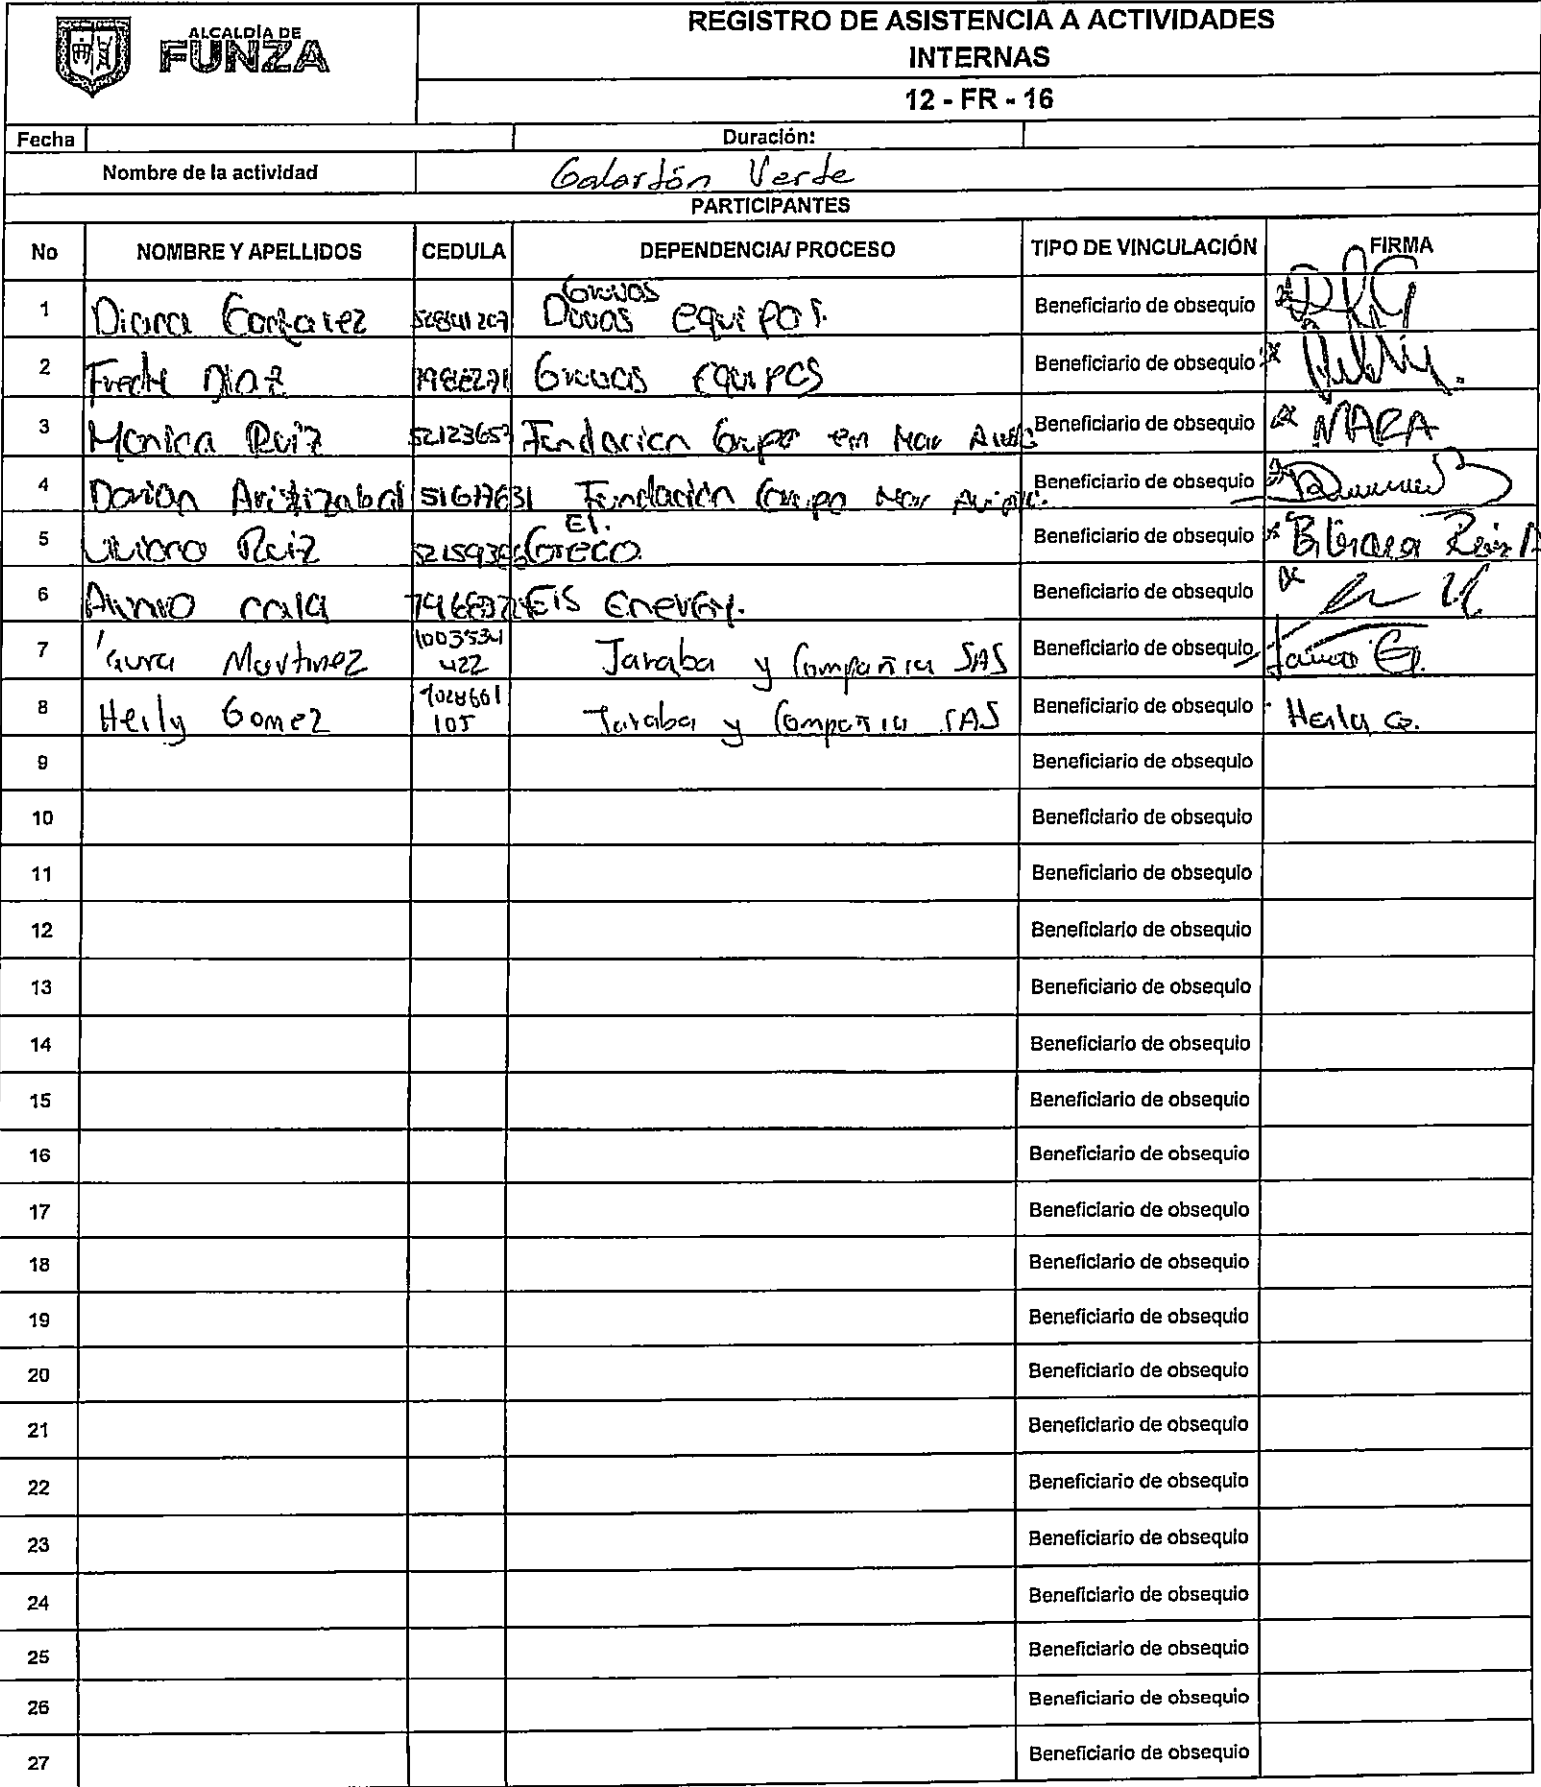 ALCALDÍA DE
FUNZA
REGISTRO DE ASISTENCIA A ACTIVIDADES
INTERNAS
12 - FR - 16
Fecha Duración:
Nombre de la actividad Galardón Verde
PARTICIPANTES
No NOMBRE Y APELLIDOS CEDULA DEPENDENCIA/ PROCESO TIPO DE VINCULACIÓN FIRMA
1 Diana equipos. Beneficiario de obsequio
2 Diaz equipos Beneficiario de obsequio
3 Monica Ruiz Grupo Mar Beneficiario de obsequio
4 Dorian Aristizabal Fundación Grupo Mar Beneficiario de obsequio
El.
5 Ruiz Greco. Beneficiario de obsequio Bibiana Ruiz A
6 EIS Energy. Beneficiario de obsequio
1003534
7 Martinez 422 Jaraba y Compañia SAS Beneficiario de obsequio
8 Heily Gomez 105 Jaraba y Compañia SAS Beneficiario de obsequio Heily G.
9 Beneficiario de obsequio
10 Beneficiario de obsequio
11 Beneficiario de obsequio
12 Beneficiario de obsequio
13 Beneficiario de obsequio
14 Beneficiario de obsequio
15 Beneficiario de obsequio
16 Beneficiario de obsequio
17 Beneficiario de obsequio
18 Beneficiario de obsequio
19 Beneficiario de obsequio
20 Beneficiario de obsequio
21 Beneficiario de obsequio
22 Beneficiario de obsequio
23 Beneficiario de obsequio
24 Beneficiario de obsequio
25 Beneficiario de obsequio
26 Beneficiario de obsequio
27 Beneficiario de obsequio